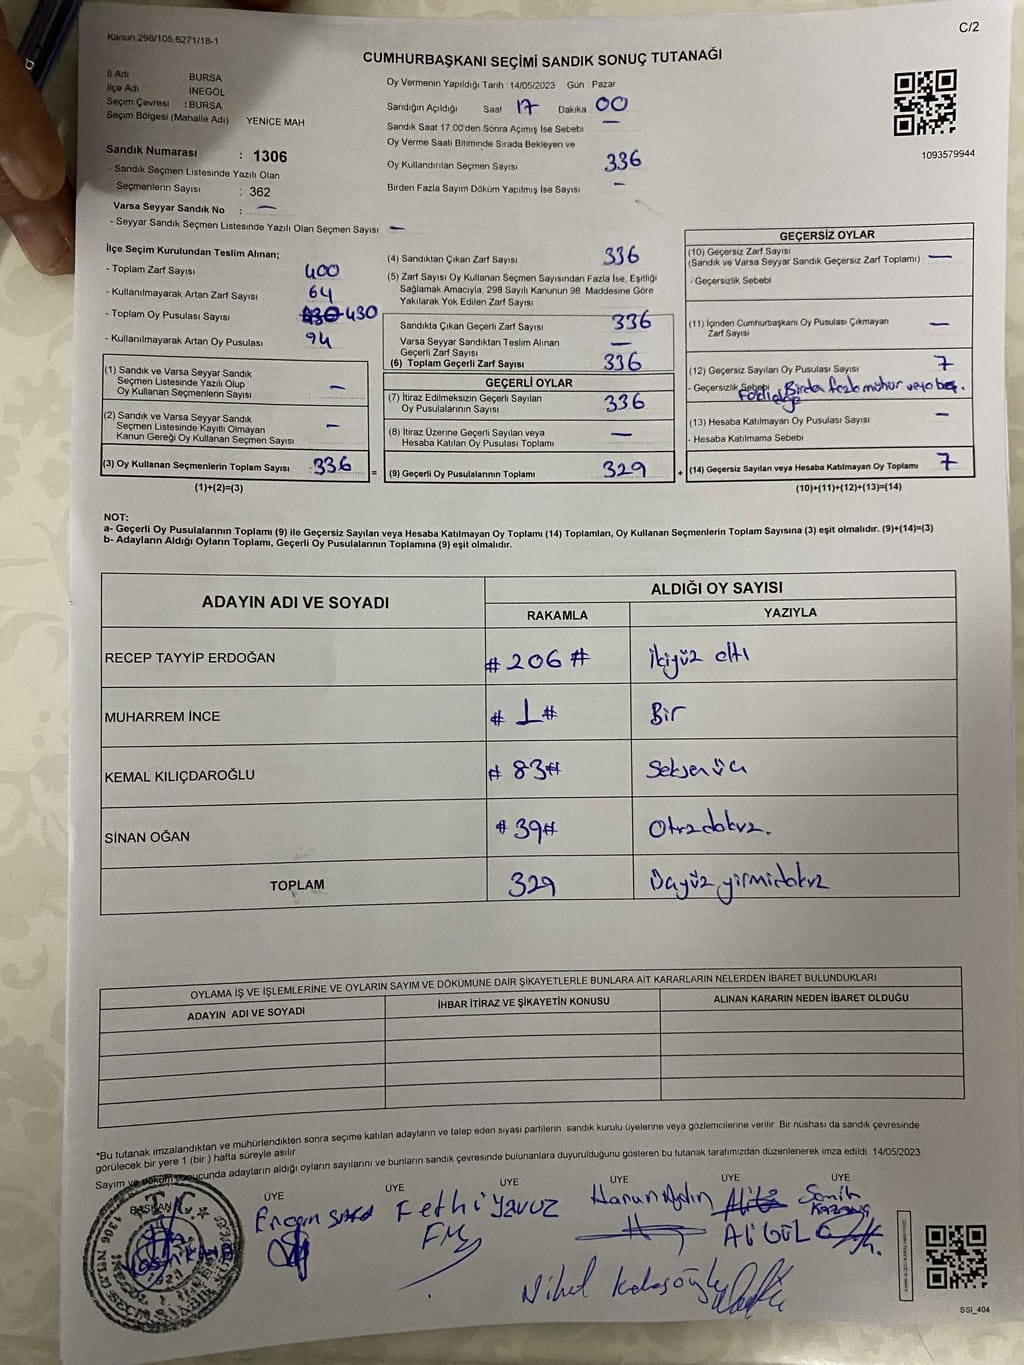 Kanun:298/105,6271/18-1
C/2
CUMHURBAŞKANI SEÇİMİ SANDIK SONUÇ TUTANAĞI
İl Adı BURSA
İlçe Adı İNEGÖL
Seçim Çevresi : BURSA
Seçim Bölgesi (Mahalle Adı) YENİCE MAH
Sandık Numarası : 1306
- Sandık Seçmen Listesinde Yazılı Olan
Seçmenlerin Sayısı : 362
Varsa Seyyar Sandık No : —
- Seyyar Sandık Seçmen Listesinde Yazılı Olan Seçmen Sayısı —
Oy Vermenin Yapıldığı Tarih : 14/05/2023 Gün Pazar
Sandığın Açıldığı Saat 17 Dakika 00
Sandık Saat 17:00'den Sonra Açımış İse Sebebi —
Oy Verme Saati Bitiminde Sırada Bekleyen ve
Oy Kullandırılan Seçmen Sayısı 336
Birden Fazla Sayım Döküm Yapılmış İse Sayısı —
1093579944
İlçe Seçim Kurulundan Teslim Alınan;
- Toplam Zarf Sayısı 400
- Kullanılmayarak Artan Zarf Sayısı 64
- Toplam Oy Pusulası Sayısı 430 430
- Kullanılmayarak Artan Oy Pusulası 94
(1) Sandık ve Varsa Seyyar Sandık
Seçmen Listesinde Yazılı Olup
Oy Kullanan Seçmenlerin Sayısı —
(2) Sandık ve Varsa Seyyar Sandık
Seçmen Listesinde Kayıtlı Olmayan
Kanun Gereği Oy Kullanan Seçmen Sayısı —
(3) Oy Kullanan Seçmenlerin Toplam Sayısı : 336 =
(1)+(2)=(3)
(4) Sandıktan Çıkan Zarf Sayısı 336
(5) Zarf Sayısı Oy Kullanan Seçmen Sayısından Fazla İse, Eşitliği
Sağlamak Amacıyla, 298 Sayılı Kanunun 98. Maddesine Göre
Yakılarak Yok Edilen Zarf Sayısı
Sandıkta Çıkan Geçerli Zarf Sayısı 336
Varsa Seyyar Sandıktan Teslim Alınan
Geçerli Zarf Sayısı —
(6) Toplam Geçerli Zarf Sayısı 336
GEÇERLİ OYLAR
(7) İtiraz Edilmeksizin Geçerli Sayılan
Oy Pusulalarının Sayısı 336
(8) İtiraz Üzerine Geçerli Sayılan veya
Hesaba Katılan Oy Pusulası Toplamı —
(9) Geçerli Oy Pusulalarının Toplamı 329 +
GEÇERSİZ OYLAR
(10) Geçersiz Zarf Sayısı
(Sandık ve Varsa Seyyar Sandık Geçersiz Zarf Toplamı) —
- Geçersizlik Sebebi
(11) İçinden Cumhurbaşkanı Oy Pusulası Çıkmayan
Zarf Sayısı —
(12) Geçersiz Sayılan Oy Pusulası Sayısı 7
- Geçersizlik Sebebi Birden fazla mühür veya boş.
(13) Hesaba Katılmayan Oy Pusulası Sayısı —
- Hesaba Katılmama Sebebi
(14) Geçersiz Sayılan veya Hesaba Katılmayan Oy Toplamı 7
(10)+(11)+(12)+(13)=(14)
NOT:
a- Geçerli Oy Pusulalarının Toplamı (9) ile Geçersiz Sayılan veya Hesaba Katılmayan Oy Toplamı (14) Toplamları, Oy Kullanan Seçmenlerin Toplam Sayısına (3) eşit olmalıdır. (9)+(14)=(3)
b- Adayların Aldığı Oyların Toplamı, Geçerli Oy Pusulalarının Toplamına (9) eşit olmalıdır.
ADAYIN ADI VE SOYADI ALDIĞI OY SAYISI
RAKAMLA YAZIYLA
RECEP TAYYİP ERDOĞAN # 206 # İkiyüz altı
MUHARREM İNCE # 1 # Bir
KEMAL KILIÇDAROĞLU # 83 # Seksen üç
SİNAN OĞAN # 39 # Otuzdokuz.
TOPLAM 329 Üçyüz yirmidokuz
OYLAMA İŞ VE İŞLEMLERİNE VE OYLARIN SAYIM VE DÖKÜMÜNE DAİR ŞİKAYETLERLE BUNLARA AİT KARARLARIN NELERDEN İBARET BULUNDUKLARI
ADAYIN ADI VE SOYADI İHBAR İTİRAZ VE ŞİKAYETİN KONUSU ALINAN KARARIN NEDEN İBARET OLDUĞU
*Bu tutanak imzalandıktan ve mühürlendikten sonra seçime katılan adayların ve talep eden siyasi partilerin sandık kurulu üyelerine veya gözlemcilerine verilir. Bir nüshası da sandık çevresinde
görülecek bir yere 1 (bir) hafta süreyle asılır
Sayım ve döküm sonucunda adayların aldığı oyların sayılarını ve bunların sandık çevresinde bulunanlara duyurulduğunu gösteren bu tutanak tarafımızdan düzenlenerek imza edildi 14/05/2023
BAŞKAN ÜYE ÜYE ÜYE ÜYE ÜYE ÜYE
Fethi Yavuz Harun Aydın
ALİ GÜL
Nihal
SSI_404